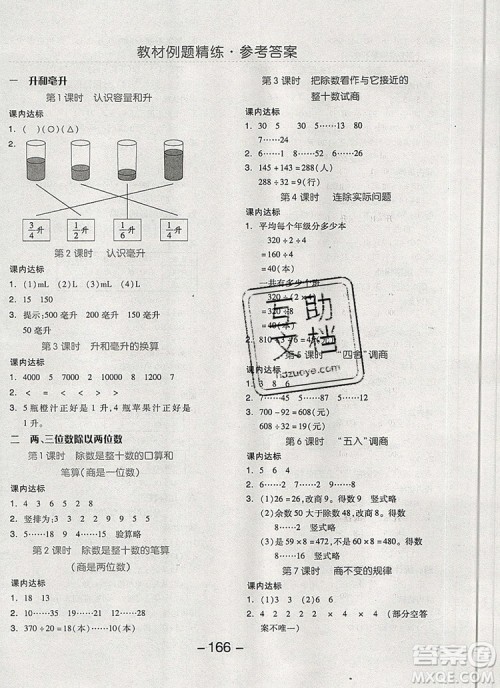 教材例题精练·参考答案
一 升和毫升
第1课时 认识容量和升
课内达标
1. ( ) (○) (○)
2.
3/4升 1/2升 1/6升 1/4升
第2课时 认识毫升
课内达标
1. (1)mL (2)L (3)L (4)mL
2. 15 150
3. 提示:500毫升 200毫升 150毫升
50毫升
第3课时 升和毫升的换算
课内达标
1. 4000 5 7000 10 8000 7
2. > < < = > <
3. 5瓶橙汁正好是1升 4瓶苹果汁正好是
1升
二 两、三位数除以两位数
第1课时 除数是整十数的口算和
笔算(商是一位数)
课内达标
1. 4 3 6 5 2 8
2. 竖排为:2 3 4 5 6 8
3. 9……4 8……15 验算略
第2课时 除数是整十数的笔算
(商是两位数)
课内达标
1. 18 13
2. 10……17 21……15 30……6
3. 370÷20=18(本)……10(本)
第3课时 把除数看作与它接近的
整十数试商
课内达标
1. 30 5 5……30 8……5
7……17
2. > < > <
3. 245+43=288(人)
288÷32=9(行)
第4课时 连除实际问题
1. 平均每个年级分多少本
320÷2÷4
=160÷4
一共有多少个
320÷(2×
=320÷
=40(本)
2. 810÷6
第5课时 “四舍”调商
1. 3 8 6
2. 7……22
3. 700-92=608(元)
第6课时 “五入”调商
课内达标
1. 5 6 4
2. (1)26=26,改商9。得数9 竖式略
(2)余数50大于除数48,改商8。得数
8……2 竖式略
(3)26<31,改商7。得数7……26
竖式略
第7课时 商不变的规律
课内达标
1. (1)○ (2)○ (3)○
2. × × √
3. 20 2 4 2 40 4 (部分空答
案不唯一)
互助
文档
hzzuoye.com
- 166 -
答案圈
MXQE.COM